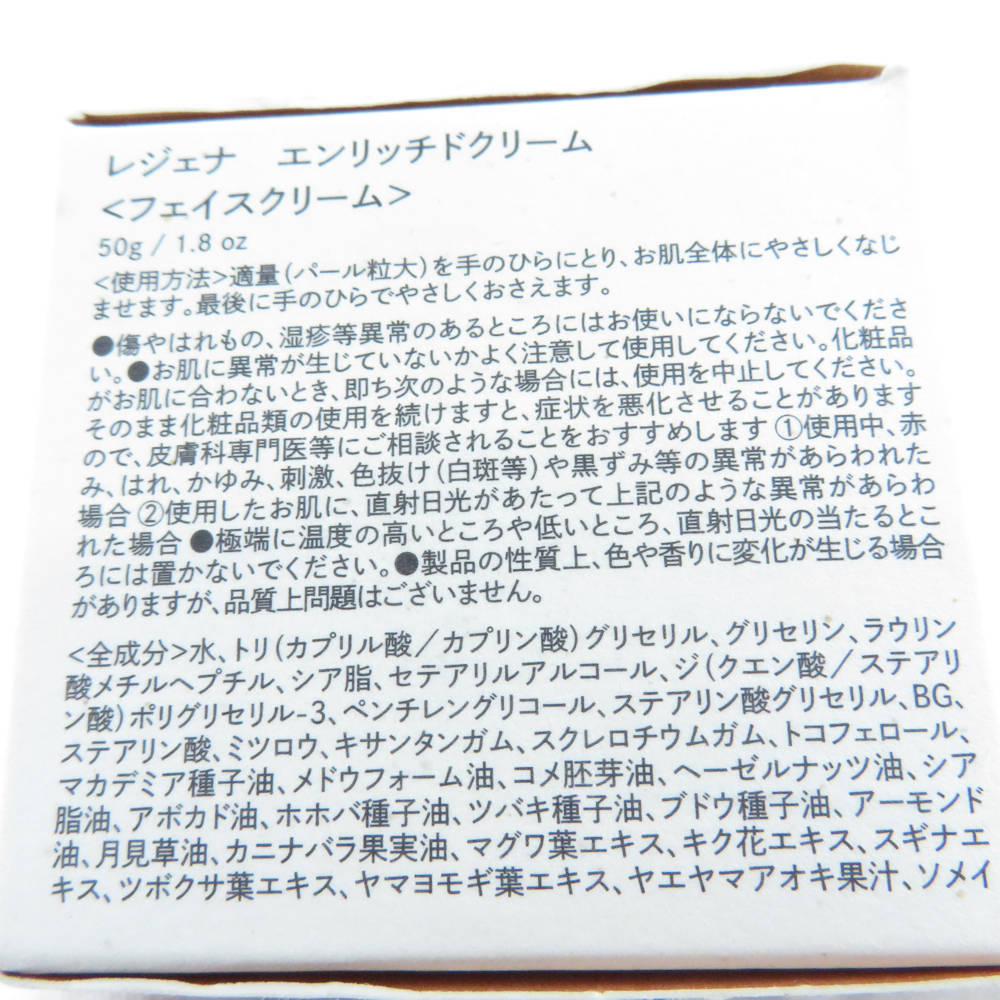 レジェナ　エンリッチドクリーム
<フェイスクリーム>
50g / 1.8 oz
<使用方法>適量(パール粒大)を手のひらにとり、お肌全体にやさしくなじ
ませます。最後に手のひらでやさしくおさえます。
●傷やはれもの、湿疹等異常のあるところにはお使いにならないでくださ
い。●お肌に異常が生じていないかよく注意して使用してください。化粧品
がお肌に合わないとき、即ち次のような場合には、使用を中止してください。
そのまま化粧品類の使用を続けますと、症状を悪化させることがあります
ので、皮膚科専門医等にご相談されることをおすすめします ①使用中、赤
み、はれ、かゆみ、刺激、色抜け(白斑等)や黒ずみ等の異常があらわれた
場合 ②使用したお肌に、直射日光があたって上記のような異常があらわ
れた場合 ●極端に温度の高いところや低いところ、直射日光の当たるとこ
ろには置かないでください。●製品の性質上、色や香りに変化が生じる場合
がありますが、品質上問題はございません。
<全成分>水、トリ(カプリル酸／カプリン酸)グリセリル、グリセリン、ラウリン
酸メチルヘプチル、シア脂、セテアリルアルコール、ジ(クエン酸／ステアリ
ン酸)ポリグリセリル-3、ペンチレングリコール、ステアリン酸グリセリル、BG、
ステアリン酸、ミツロウ、キサンタンガム、スクレロチウムガム、トコフェロール、
マカデミア種子油、メドウフォーム油、コメ胚芽油、ヘーゼルナッツ油、シア
脂油、アボカド油、ホホバ種子油、ツバキ種子油、ブドウ種子油、アーモンド
油、月見草油、カニナバラ果実油、マグワ葉エキス、キク花エキス、スギナエ
キス、ツボクサ葉エキス、ヤマヨモギ葉エキス、ヤエヤマアオキ果汁、ソメイ